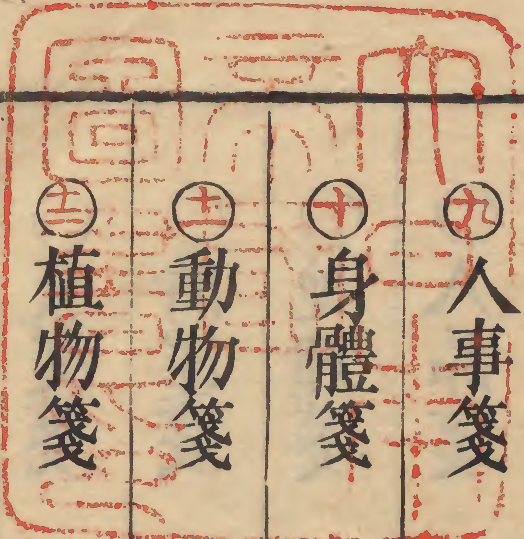 九 人事箋
十 身體箋
十一 動物箋
十二 植物箋